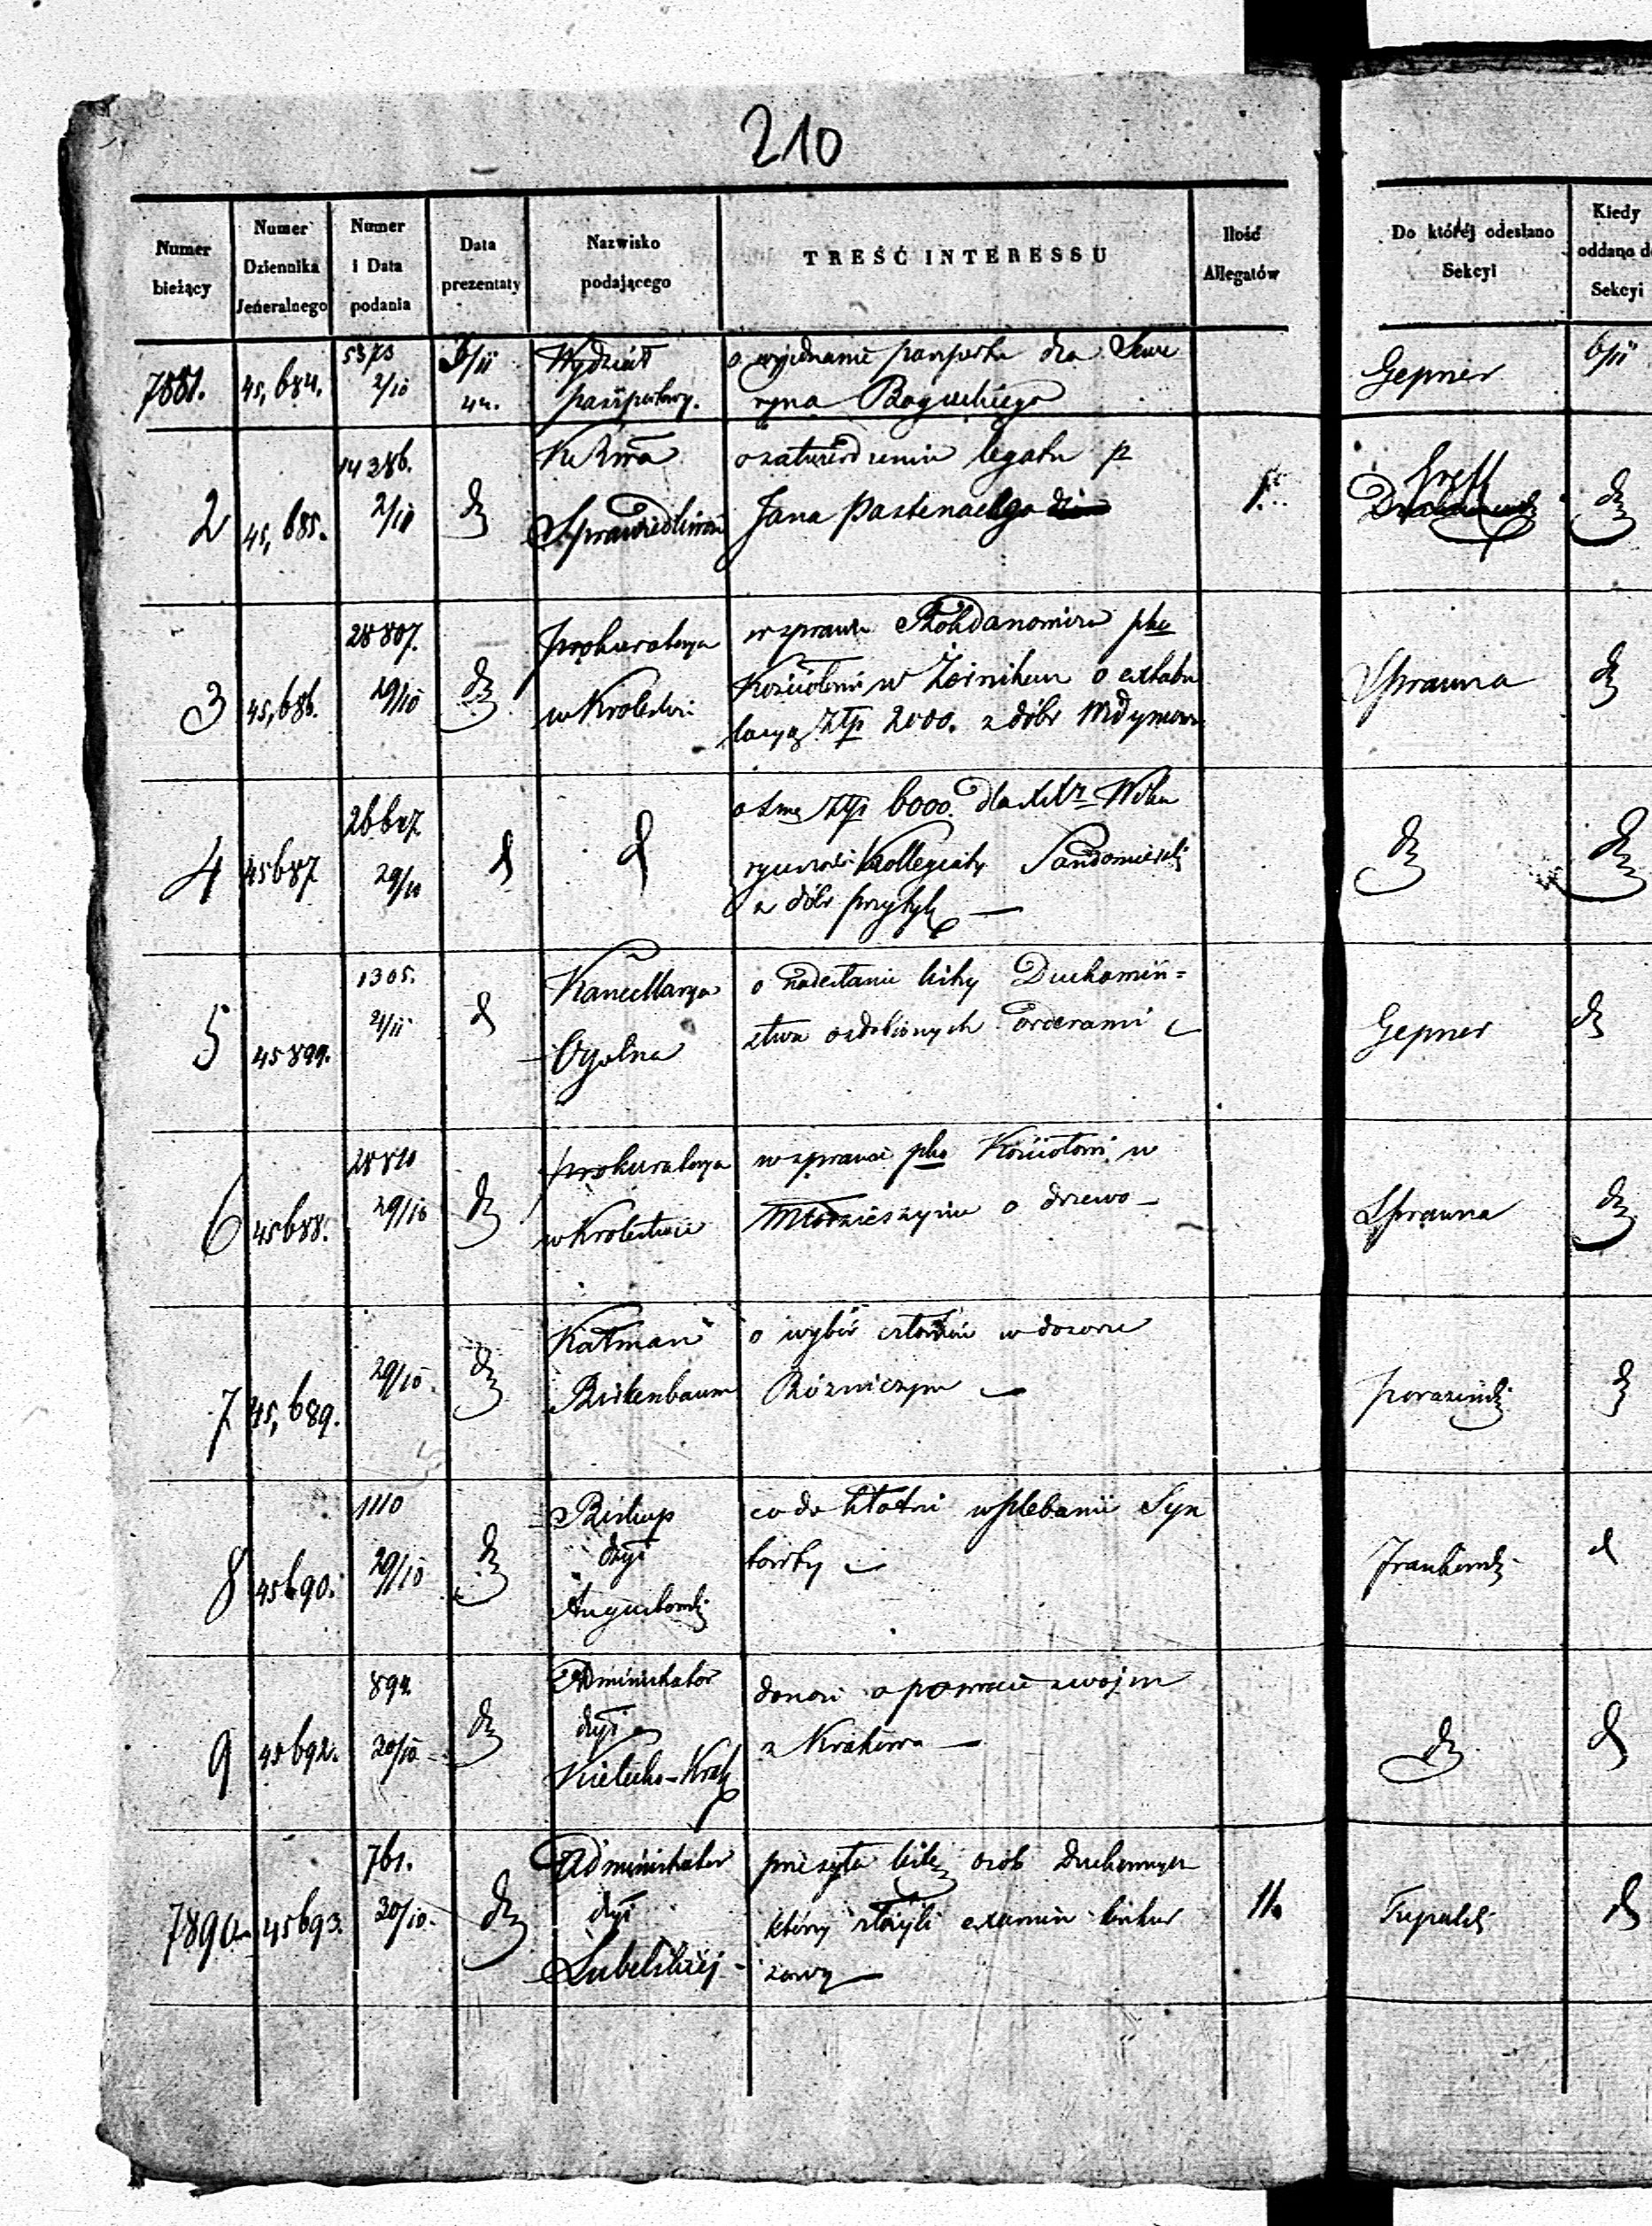 210
Numer bieżący
Numer Dziennika Jeneralnego
Numer i Data podania
Data prezentaty
Nazwisko podającego
TREŚĆ INTERESSU
Ilość Allegatów
Do której odesłano Sekcyi
Kiedy oddano d
Sekcyi
7881. 45,684. 5373 2/10 3/11 42. Wydział paszportowy. o wyjednanie paszportu dla Sewe
ryna Boguckiego
Gepner 6/11
2 45,685. 14386. 2/11 d Sprawiedliwości o zatwierdzenie legatu p
Jana Pasternackgo
1. d
3 45,686. 28807. 29/10 d Prokuratorya w Królestwie w sprawie pko
Kościołowi w Żernikach o extabu
lacyą Złp 2000. z dóbr
Sprawna d
4 45687 29/10 d d Złp 6000. dla
Kollegiaty Sandomierski
z dóbr Przytyk —
d d
5 45899. 1305. 2/11 d Kancellarya Ogólna o nadesłanie listy Duchowień=
stwa ozdobionych orderami
Gepner d
6 45688. 28810 29/10 d Prokuratorya w Królestwie w sprawie pko Kościołowi w
Młodzieszynie o drzewo —
Sprawna d
7 45,689. 29/10. d Kałman Birkenbaum o wybór członków w dozorze
Bóżniczym —
d
8 45690. 1110 29/10 d Biskup dyi Augustowski co do kłótni w plebanii Syn
towty —
d
9 45692. 892. 20/10 d Administrator dyi Kielecko-Krak donosi o powrocie swojem
z Krakowa —
d d
7890. 45693. 761. 30/10. d Administrator dyi Lubelskiej przesyła listę osób duchownych
którzy złożyli examin konkur
sowy —
11. d